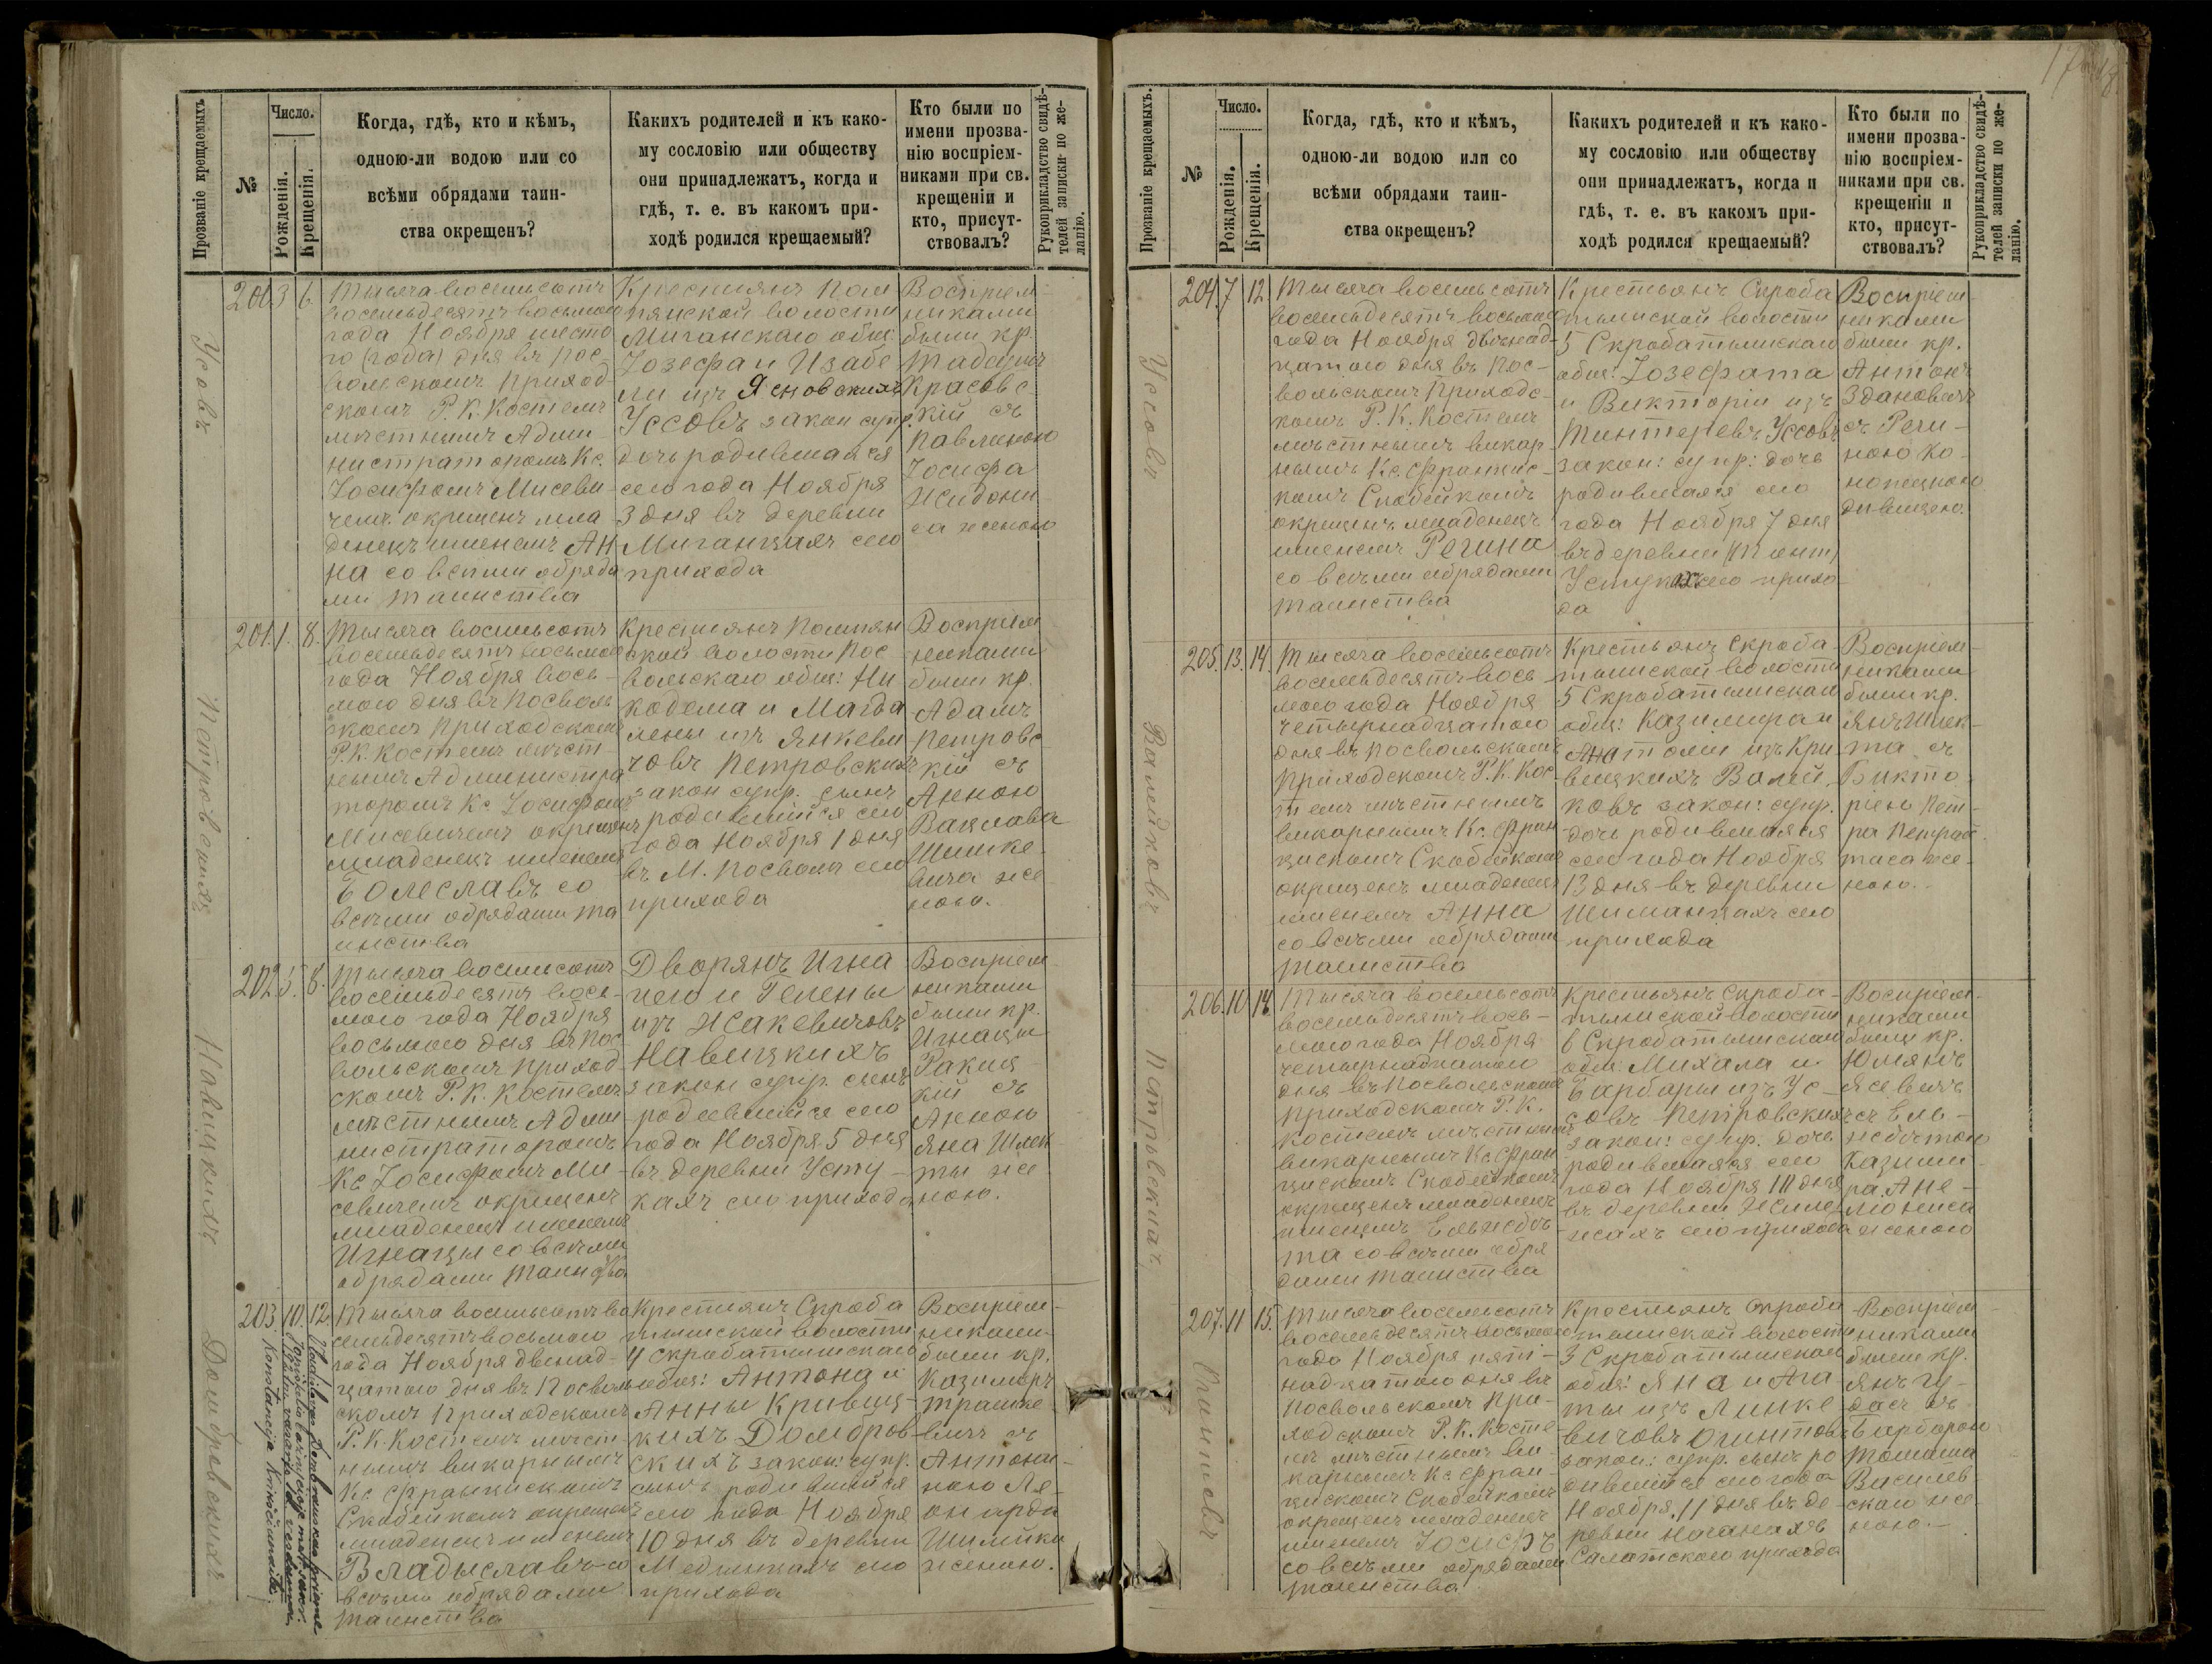 Прозваніе крещаемыхъ
№
Число.
Рожденія.
Крещенія.
Когда, гдѣ, кто и кѣмъ,
одною-ли водою или со
всѣми обрядами таин-
ства окрещенъ?
Какихъ родителей и къ како-
му сословію или обществу
они принадлежатъ, когда и
гдѣ, т. е. въ какомъ при-
ходѣ родился крещаемый?
Кто были по
имени прозва-
нію воспріем-
никами при св.
крещеніи и
кто, присут-
ствовалъ?
Рукоприкладство свидѣ-
телей записки по же-
ланію.
Усовъ
200 3 6
Тысяча восемьсотъ
восемьдесятъ восьмого
года Ноября шесто
го (года) дня въ Пос-
вольскомъ Приход
скомъ Р. К. Костелѣ
мѣстнымъ Адми
нистраторомъ Кс.
Іосифомъ Мисеви
чемъ окрещенъ мла
денецъ именемъ Ан
на со всѣми обряда
ми таинства
Крестьянъ Пом
пянской волости
Миганскаго общ:
Іозефа и Изабе
ли изъ Ясновскихъ
Уссовъ закон супр.
дочь родившаяся
сего года Ноября
3 дня въ деревни
Миганцахъ сего
прихода
Воспріем
никами
были кр.
Тадеушъ
Красовс
кій съ
Павлиною
Іосифа
женою
Петровскихъ
201. 1. 8.
Тысяча восемьсотъ
восемьдесятъ восьмого
года Ноября вось-
мого дня въ Посволь
скомъ Приходскомъ
Р. К. Костелѣ мѣст-
нымъ Администра
торомъ Кс Іосифомъ
Мисевичемъ окрещенъ
младенецъ именемъ
Болеславъ со
всѣми обрядами та
инства
Крестьянъ Помпян
ской волости Пос
вольскаго общ: Ни
кодема и Магда
лены изъ Янкеви
човъ Петровскихъ
закон супр. сынъ
родившійся сего
года Ноября 1 дня
въ М. Посволи сего
прихода
Воспріем
никами
были кр.
Адамъ
Петровс
кій съ
Анною
Вацлава
Шимке
вича же
ною.
Навицкихъ
202 5. 8.
Тысяча восемьсотъ
восемьдесятъ вось-
мого года Ноября
восьмого дня въ Пос
вольскомъ Приход
скомъ Р. К. Костелѣ
мѣстнымъ Адми
нистраторомъ
Кс Іосифомъ Ми-
севичемъ окрещенъ
младенецъ именемъ
Игнацы со всѣми
обрядами таинства
Дворянъ Игна
чего и Гелены
изъ Жакевичовъ
Навицкихъ
закон супр. сынъ
родившійся сего
года Ноября 5 дня
въ деревни Усту-
кахъ сего прихода
Воспріем
никами
были кр.
Игнацы
Ракиц-
кій съ
Анною
Яна Шлек
ты же
ною.
Домбровскихъ
203 10. 12
Тысяча восемьсотъ во
семьдесятъ восьмого
года Ноября двенад-
цатого дня въ Посволь
скомъ Приходскомъ
Р. К. Костелѣ мѣст-
нымъ викарнымъ
Кс Францискомъ
Скабейкомъ окрещенъ
младенецъ именемъ
Владыславъ со
всѣми обрядами
таинства
Крестьянъ Скроба
тышской волости
4 Скробатышскаго
общ: Антона и
Анны Кривиц-
кихъ Домбров-
скихъ закон: супр.
сынъ родившійся
сего года Ноября
10 дня въ деревни
Медикахъ сего
прихода
Воспріем-
никами
были кр.
Казимиръ
съ
Антони-
ною Ле-
онарда
женою.
Прозваніе крещаемыхъ.
№
Число.
Рожденія.
Крещенія.
Когда, гдѣ, кто и кѣмъ,
одною-ли водою или со
всѣми обрядами таин-
ства окрещенъ?
Какихъ родителей и къ како-
му сословію или обществу
они принадлежатъ, когда и
гдѣ, т. е. въ какомъ при-
ходѣ родился крещаемый?
Кто были по
имени прозва-
нію воспріем-
никами при св.
крещеніи и
кто, присут-
ствовалъ?
Рукоприкладство свидѣ-
телей записки по же-
ланію.
Уссовъ
204 7 12
Тысяча восемьсотъ
восемьдесятъ восьмого
года Ноября двѣнад-
цатого дня въ Пос-
вольскомъ Приходс-
комъ Р. К. Костелѣ
мѣстнымъ викар-
нымъ Кс. Францис-
комъ Скабейкомъ
окрещенъ младенецъ
именемъ Регина
со всѣми обрядами
таинства
Крестьянъ Скроба
тышской волости
5 Скробатышскаго
общ: Іозефата
и Викторіи изъ
Уссовъ
закон: супр: дочь
родившаяся сего
года Ноября 7 дня
въ деревни
Устукахъ сего прихо-
да
Воспріем-
никами
были кр.
Антонъ
Здановичъ
съ Реги-
ною Ко-
нопицкою
дѣвицею.
Валейковъ
205. 13. 14.
Тысяча восемьсотъ
восемьдесятъ вось-
мого года Ноября
четырнадцатого
дня въ Посвольскомъ
Приходскомъ Р. К. Кос-
телѣ мѣстнымъ
викарнымъ Кс. Фран
цискомъ Скабейкомъ
окрещенъ младенецъ
именемъ Анна
со всѣми обрядами
таинства
Крестьянъ Скроба-
тышской волости
5 Скробатышскаго
общ: Казимира и
Анатоліи изъ Кри
вицкихъ Валей-
ковъ закон: супр.
дочь родившаяся
сего года Ноября
13 дня въ деревни
Шиманцахъ сего
прихода
Воспріем-
никами
были кр.
Янъ Шлек-
та съ
Викто-
ріею Пет-
ра Петрай-
таса же-
ною.
Петровскихъ
206. 10 14
Тысяча восемьсотъ
восемьдесятъ вось-
мого года Ноября
четырнадцатого
дня въ Посвольскомъ
Приходскомъ Р. К.
Костелѣ мѣстнымъ
викарнымъ Кс Фран
цискомъ Скабейкомъ
окрещенъ младенецъ
именемъ Ельжбѣ-
та со всѣми обря
дами таинства
Крестьянъ Скроба-
тышской волости
6 Скробатышскаго
общ: Михала и
Барбары изъ Ус-
совъ Петровскихъ
закон: супр. дочь
родившаяся сего
года Ноября 10 дня
въ деревни
сего прихода
Воспріем-
никами
были кр.
Юльянъ
съ Ель-
жбѣтою
Казими-
ра
женою
207. 11 15.
Тысяча восемьсотъ
восемьдесятъ восьмого
года Ноября пят-
надцатого дня въ
Посвольскомъ При-
ходскомъ Р. К. Косте
лѣ мѣстнымъ ви-
карнымъ Кс Фран-
цискомъ Скабейкомъ
окрещенъ младенецъ
именемъ Іосифъ
со всѣми обрядами
таинства
Крестьянъ Скроба
тышской волости
3 Скробатышскаго
общ: Яна и Ага-
ты изъ Линке
вичовъ Огинтовъ
закон: супр. сынъ ро
дившійся сего года
Ноября 11 дня въ де-
ревни Наганахъ
Салатскаго прихода
Воспріем
никами
были кр.
Янъ Гу-
дасъ съ
Барбарою
Томаша
Василев-
скаго же-
ною.